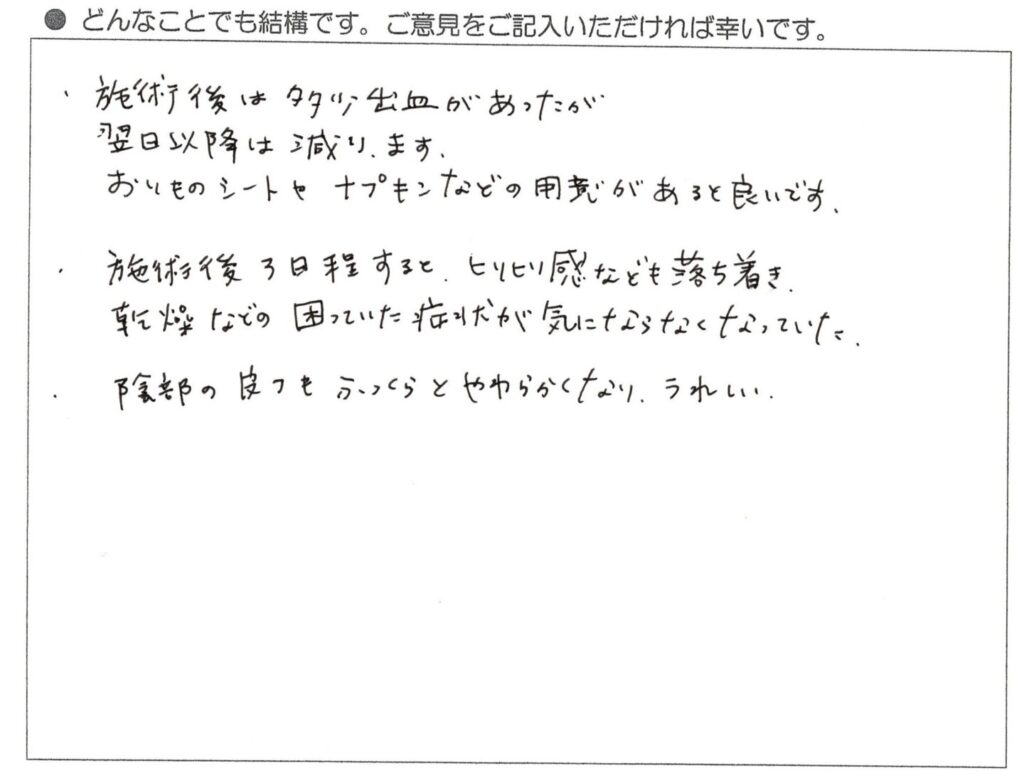 ● どんなことでも結構です。ご意見をご記入いただければ幸いです。
・ 施術後は多少出血があったが
翌日以降は減ります.
おりものシートや ナプキンなどの用意があると良いです.
・ 施術後3日程すると、ヒリヒリ感なども落ち着き、
乾燥などの困っていた症状が気にならなくなっていた.
・ 陰部の皮フも ふっくらとやわらかくなり、うれしい.